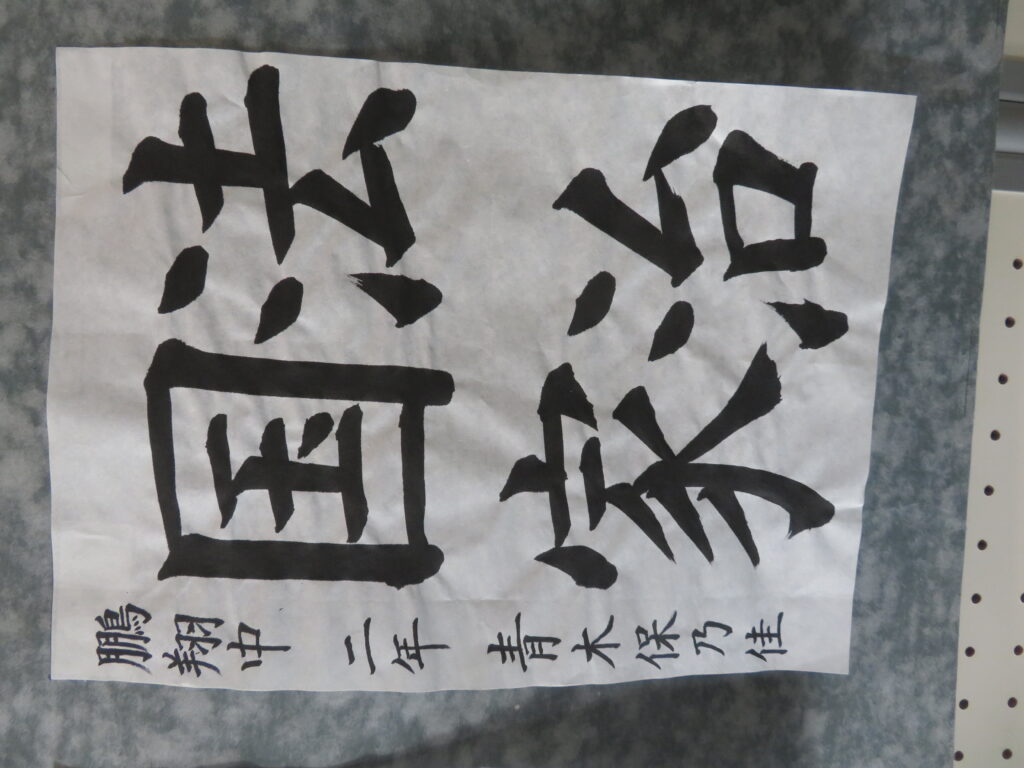 法治
国家
鵬翔中 二年 青木保乃佳